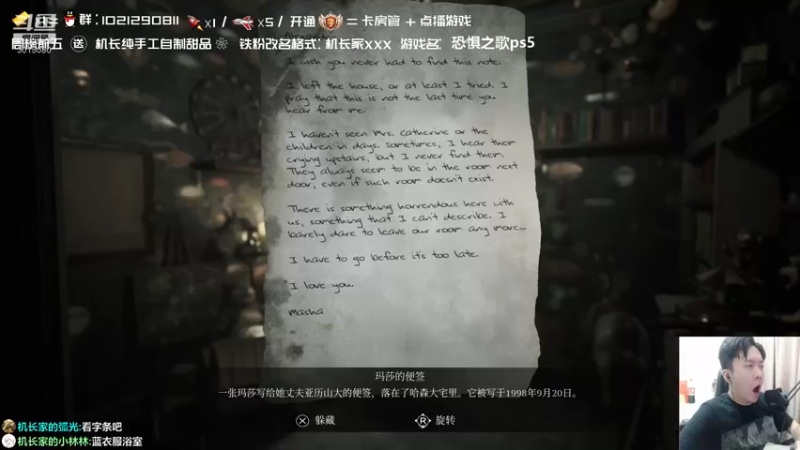 群:1021290811 x1 / x5 / 开通 = 卡房管 + 点播游戏
周榜前五 送 机长纯手工自制甜品 铁粉改名格式: 机长家xxx 游戏名: 恐惧之歌ps5
I wish you never had to find this note.
I left the house, or at least I tried. I
pray that this is not the last time you
hear from me.
I haven't seen Mrs. Catherine or the
children in days. Sometimes, I hear them
crying upstairs, but I never find them.
They always seem to be in the room next
door, even if such room doesn't exist.
There is something horrendous here with
us, something that I can't describe. I
barely dare to leave our room any more...
I have to go before it's too late.
I love you.
Masha
玛莎的便签
一张玛莎写给她丈夫亚历山大的便签，落在了哈森大宅里。它被写于1998年9月20日。
躲藏 R 旋转
机长家的弧光:看字条吧
机长家的小林林:蓝衣服浴室